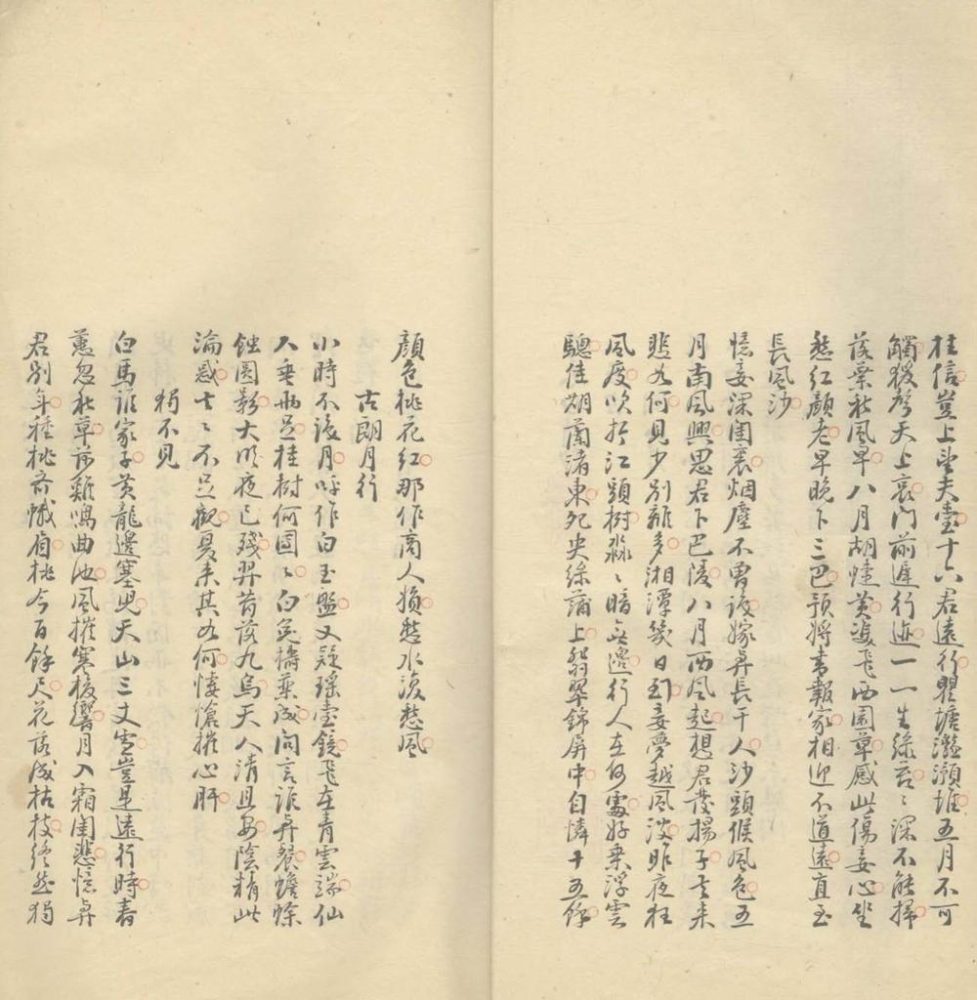 柱信豈上望夫臺十六君遠行瞿塘灩澦堆五月不可
觸猨聲天上哀門前遲行迹一一生綠苔〻深不能掃
落葉秋風早八月胡蝶黃雙飛西園草感此傷妾心坐
愁紅顏老早晚下三巴預將書報家相迎不道遠直至
長風沙
憶妾深閨裏烟塵不曾識嫁與長干人沙頭候風色五
月南風興思君下巴陵八月西風起想君發揚子去來
悲如何見少別離多湘潭幾日到妾夢越風波昨夜狂
風度吹折江頭樹淼〻暗無邊行人在何處好乘浮雲
驄佳期蘭渚東鴛央綠蒲上翡翠錦屏中自憐十五餘
顏色桃花紅那作商人婦愁水復愁風
古朗月行
小時不識月呼作白玉盤又疑瑤臺鏡飛在青雲端仙
人垂兩足桂樹何團〻白兔擣藥成問言誰與餐蟾蜍
蝕圓影大明夜已殘羿昔落九烏天人清且安陰精此
淪惑去〻不足觀憂來其如何悽愴摧心肝
獨不見
白馬誰家子黃龍邊塞兒天山三丈雪豈是遠行時春
蕙忽秋草莎雞鳴曲池風摧寒梭響月入霜閨悲憶與
君別年種桃齊蛾眉桃今百餘尺花落成枯枝終然獨